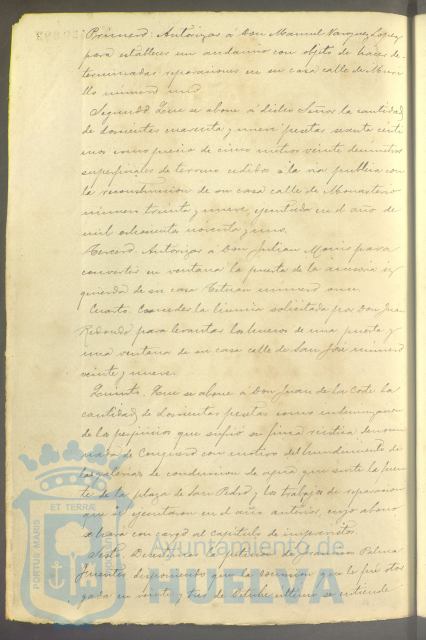 Primero: Autorizar á Don Manuel Vazquez Lopez
para establecer un andamio con objeto de hacer de-
terminadas reparaciones en su casa calle de Muri-
llo número uno
Segundo. Que se abone á dicho Señor la cantidad
de doscientas cuarenta y nueve pesetas sesenta centi
mos como precio de cinco metros veinte decimetros
superficiales de terreno cedidos á la via publica con
la reconstruccion de su casa calle de Monasterio
numero treinta y nueve, ejecutada en el año de
mil ochocientos noventa y uno.
Tercero. Autorizar á Don Julian para
convertir en ventana la puerta de la accesoria iz
quierda de su casa Tetuan numero once.
Cuarto. Conceder la licencia solicitada por Don Juan
Redondo para levantar los huecos de una puerta y
una ventana de su casa calle de San José número
veinte y nueve.
Quinto. Que se abone á Don Juan de la Corte la
cantidad de doscientas pesetas como indemnizacion
de los perjuicios que sufrió su finca rústica denomi
nada de Conquero con motivo del hundimiento de
las galerias de conduccion de agua que surte la fuen
te de la plaza de San Pedro y los trabajos de reparacion
que se ejecutaron en el año anterior, cuyo abono
se hará con cargo al capitulo de imprevistos
Sesto. Desestimar la peticion de Juan Palma
Fuentes disponiendo que la licencia que le fué otor
gada en veinte y tres de Octubre ultimo se entiende
PORTUS MARIS ET TERRÆ CUSTODIA
Ayuntamiento de
HUELVA